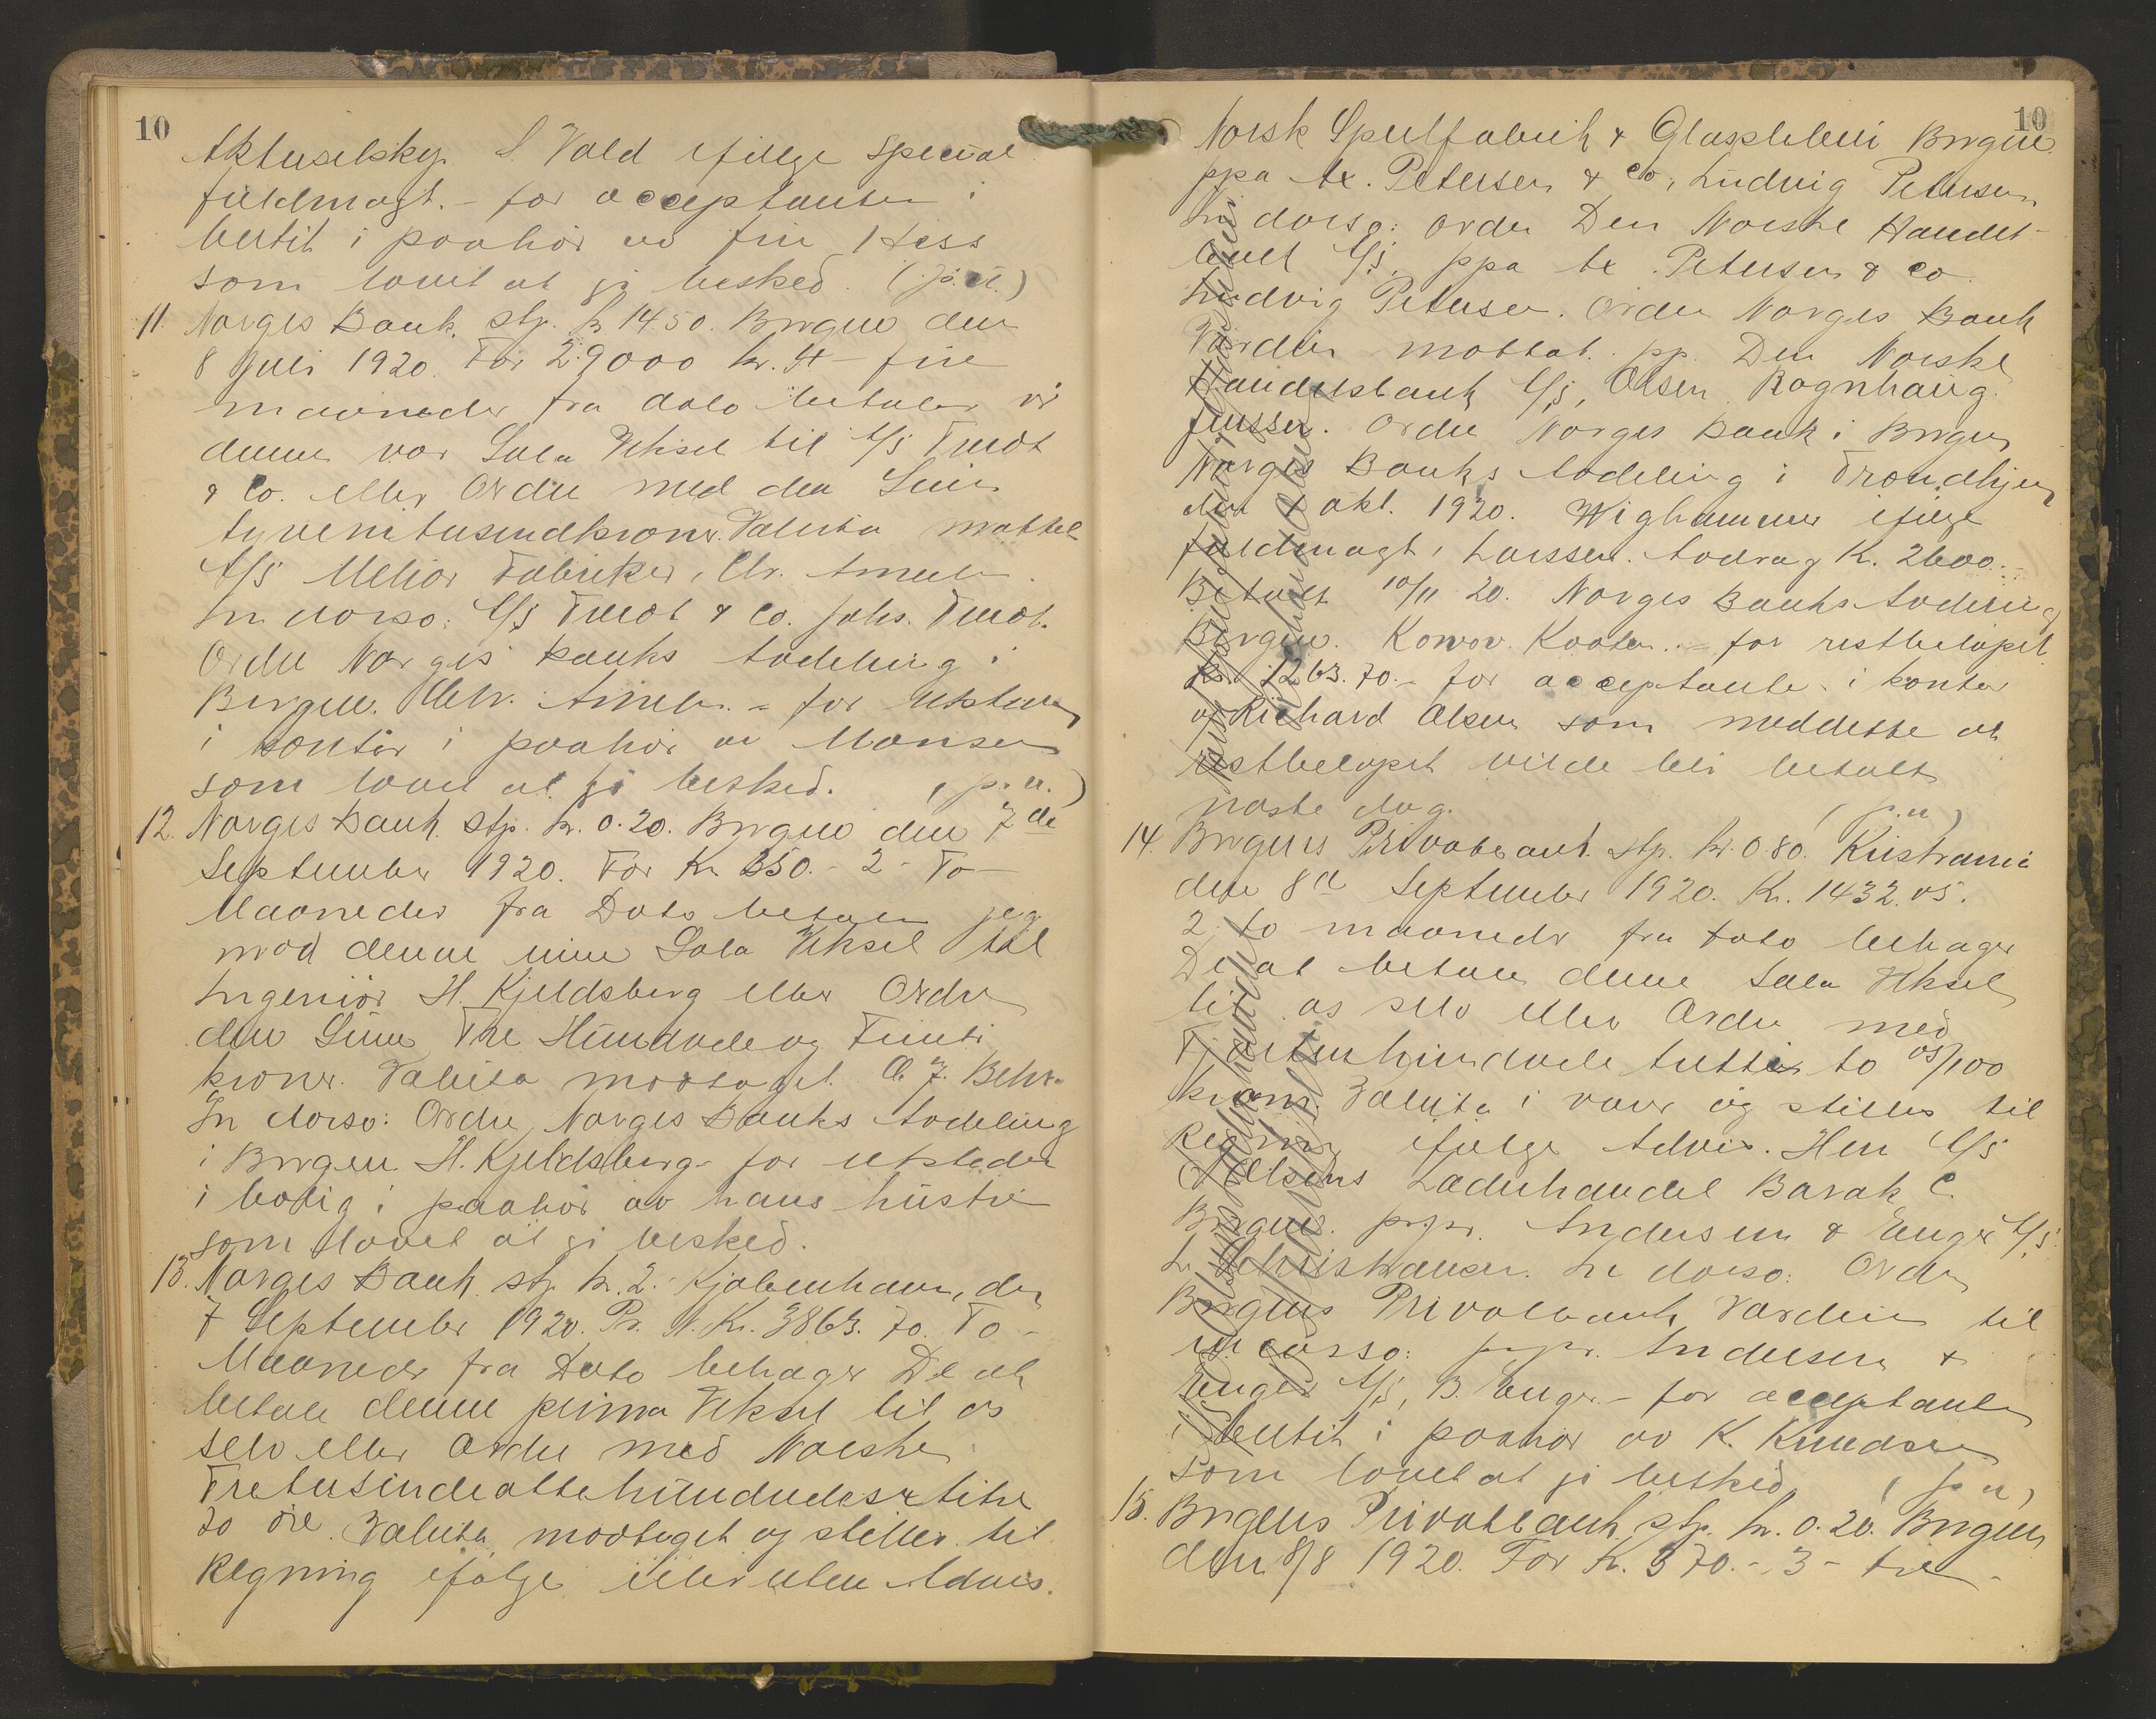 10
Aktieselsky. S. Vold ifölge Special
fuldmagt. - for acceptanten i
butik i paahör av frk Hess
som lovet at gi besked. (p. u.)
11. Norges Bank. Stp. kr 14.50. Bergen den
8 Juli 1920. For 29000 kr. 4 - fire
maaneder fra dato betaler vi
denne vor Sola Veksel til A/S Tvedt
& Co. eller Ordre med den Sum
tyvenitusendkroner. Valuta mottat
A/S Melior Fabriker, Chr. Ameln.
In dorso: A/S Tvedt & Co. Johs. Tvedt.
Ordre Norges Banks Avdeling i
Bergen. Chr. Ameln. - for utsteder
i kontor i paahör av Monsen
som lovet at gi besked. (p. u.)
12. Norges Bank. Stp. kr. 0.20. Bergen den 7de
September 1920. For Kr 350.- 2 - To -
Maaneder fra Dato betaler jeg
mod denne min Sola Veksel til
Ingeniör H. Kjeldsberg eller Ordre
den Sum Tre Hundrede og Femti
kroner. Valuta modtaget. C. F. Behr.
In dorso: Ordre Norges Banks Avdeling
i Bergen H. Kjeldsberg - for utsteder
i bolig i paahör av hans hustru
som lovet at gi besked.
13. Norges Bank. stp. kr. 2.- Kjøbenhavn, den
7 September 1920. Pr. N. Kr. 3863.70. To -
Maaneder fra Dato behager De at
betale denne prima Veksel til os
selv eller Ordre med Norske
Tretusindeottehundredesextitre
70 öre. Valuta modtaget og stilles til
Regning ifölge eller uden Advis.
10
Norsk Speilfabrik & Glassliberi Bergen.
ppa Ax. Petersen & Co, Ludvig Petersen
In dorso: Ordre Den Norske Handels-
bank A/S. ppa Ax. Petersen & Co
Ludvig Petersen. Ordre Norges Bank
Værdien mottat. pp. Den Norske
Handelsbank A/S, Olsen Rognhaug.
Jenssen. Ordre Norges Bank i Bergen
Norges Banks Avdeling i Trondhjem
den okt. 1920. Wighammer ifölge
fuldmagt, Larssen. Avdrag K. 2600.-
Betalt 10/11 20. Norges Banks Avdeling
Bergen. Konow. Kooter. - for restbelöpet
kr. 1263.70.- for acceptanten i kontor
av Richard Olsen som meddelte at
restbelöpet vilde bli betalt
næste dag. (p. u)
14. Bergens Privatbank. Stp. kr. 0.80. Kristiania
den 8de September 1920. Kr. 1432.05.
2 to maaneder fra dato behager
De at betale denne Sola Veksel
til os selv eller Ordre med
Fjortenhundrede trettito 05/100
kroner. Valuta i varer og stilles til
Regning ifölge Advis. Herr A/S
Olsens Læderhandel Barak C.
Bergen. pr.pr. Andersen & Enger A/S
L. Christiansen. In dorso: Ordre
Bergens Privatbank Værdien til
incasso: pr.pr. Andersen &
Enger A/S, B. Enger - for acceptanten
i butik i paahör av K. Knudsen
som lovet at gi besked (p. u)
15. Bergens Privatbank stp. kr. 0.20. Bergen
den 8/8 1920. For Kr. 370.- 3 - tre -